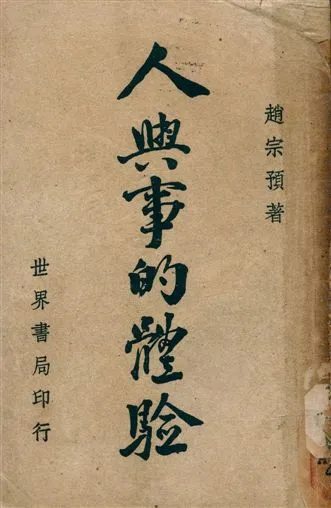 趙宗預著
人與事的體驗
世界書局印行